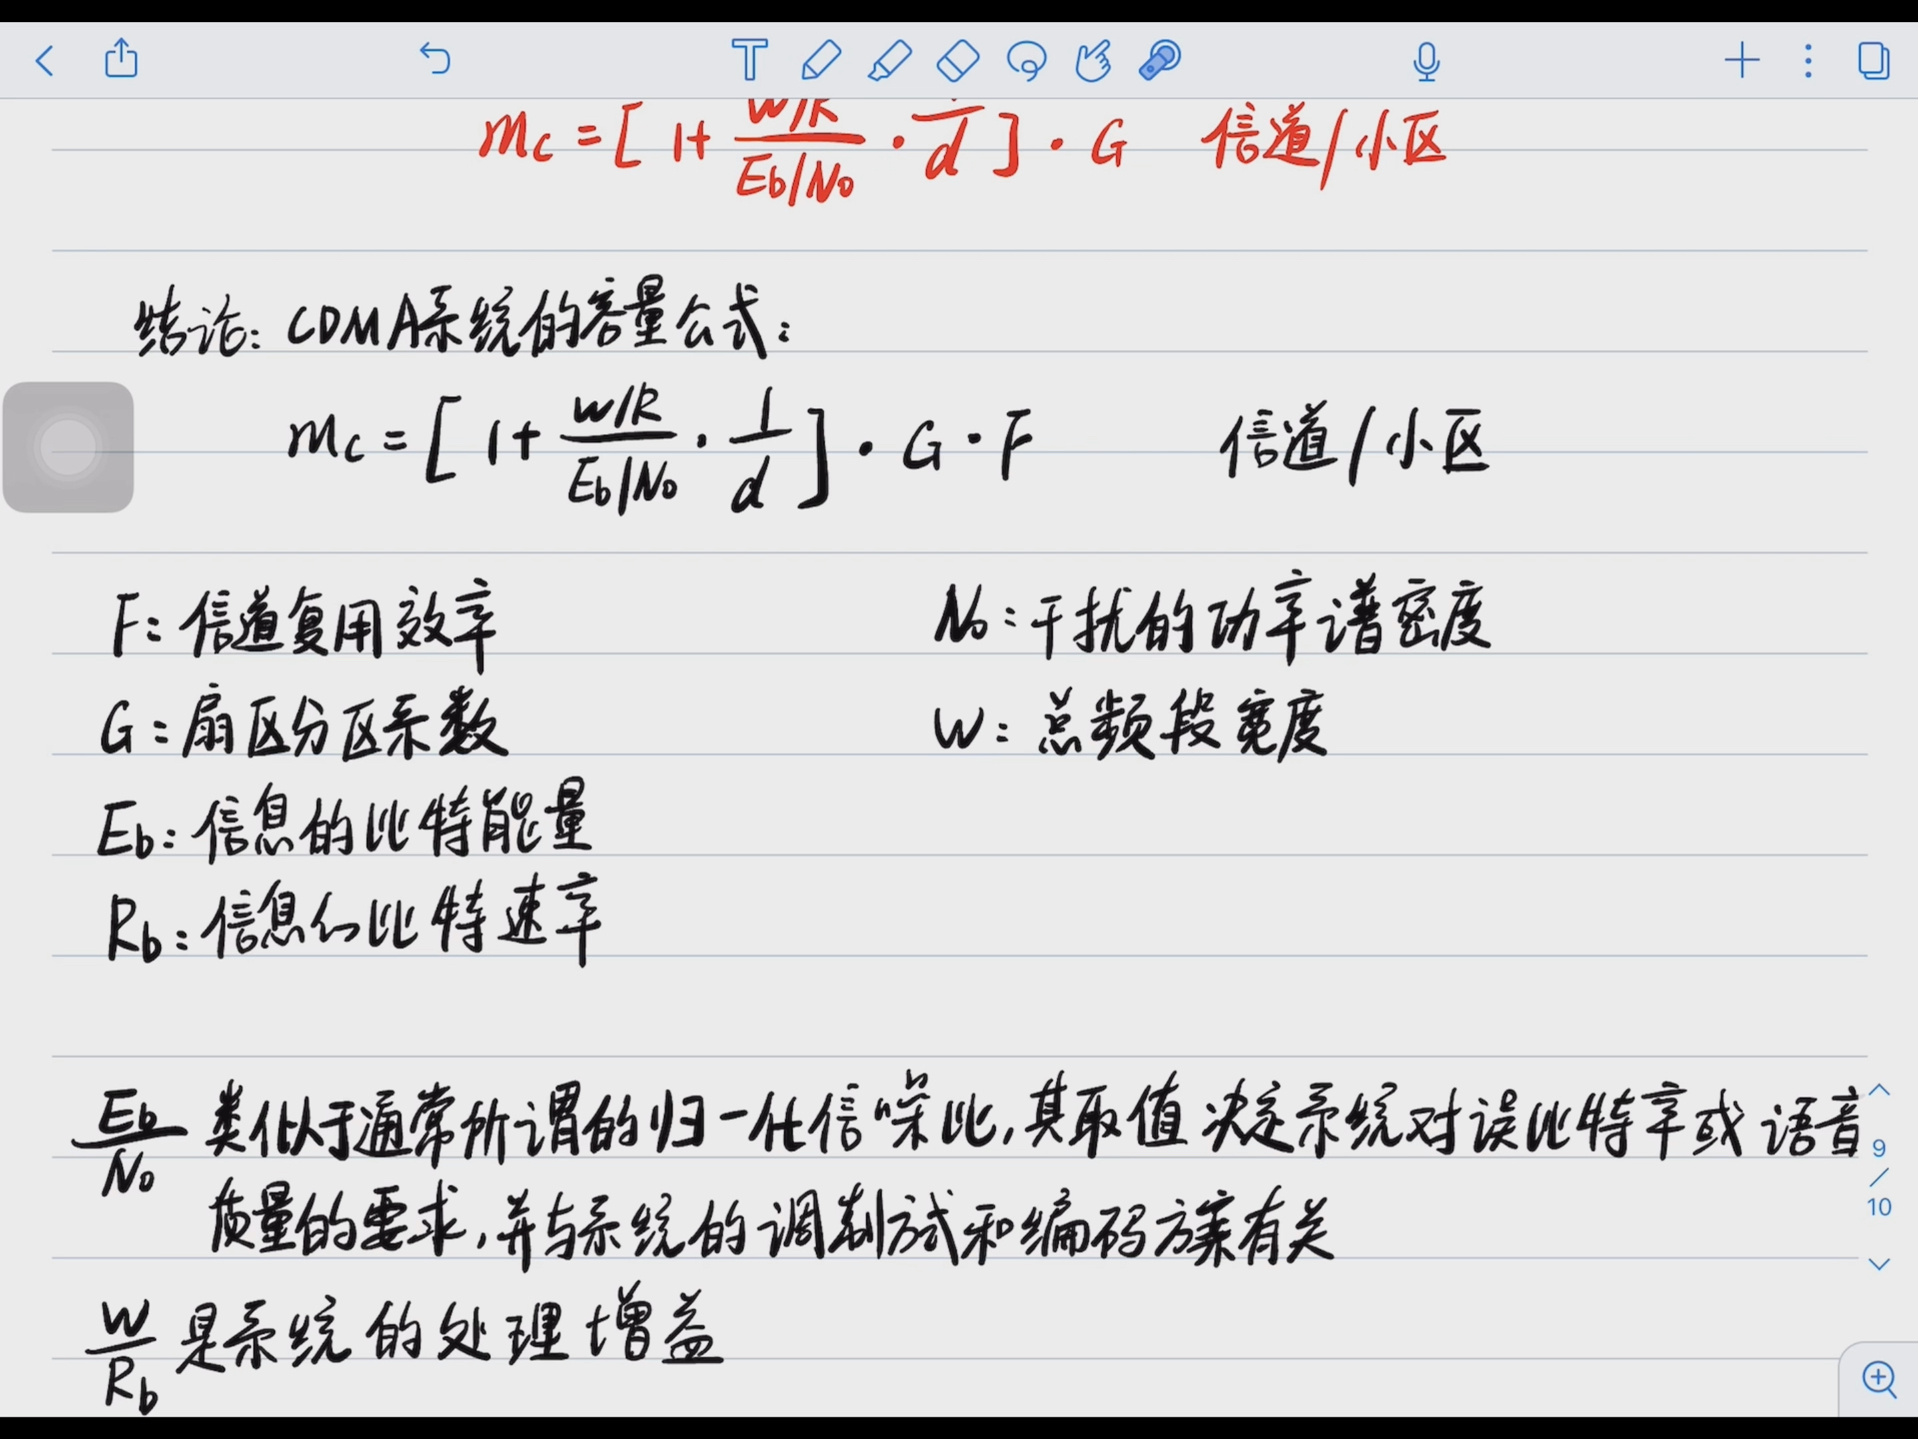 mc = [ 1 + W/R / Eb/No · 1/d ] · G 信道/小区
结论: CDMA系统的容量公式:
mc = [ 1 + W/R / Eb/No · 1/d ] · G · F 信道/小区
F: 信道复用效率 No: 干扰的功率谱密度
G: 扇区分区系数 W: 总频段宽度
Eb: 信息的比特能量
Rb: 信息的比特速率
Eb/No 类似于通常所谓的归一化信噪比, 其取值决定系统对误比特率或语音
质量的要求, 并与系统的调制方式和编码方案有关
W/Rb 是系统的处理增益
9
/
10